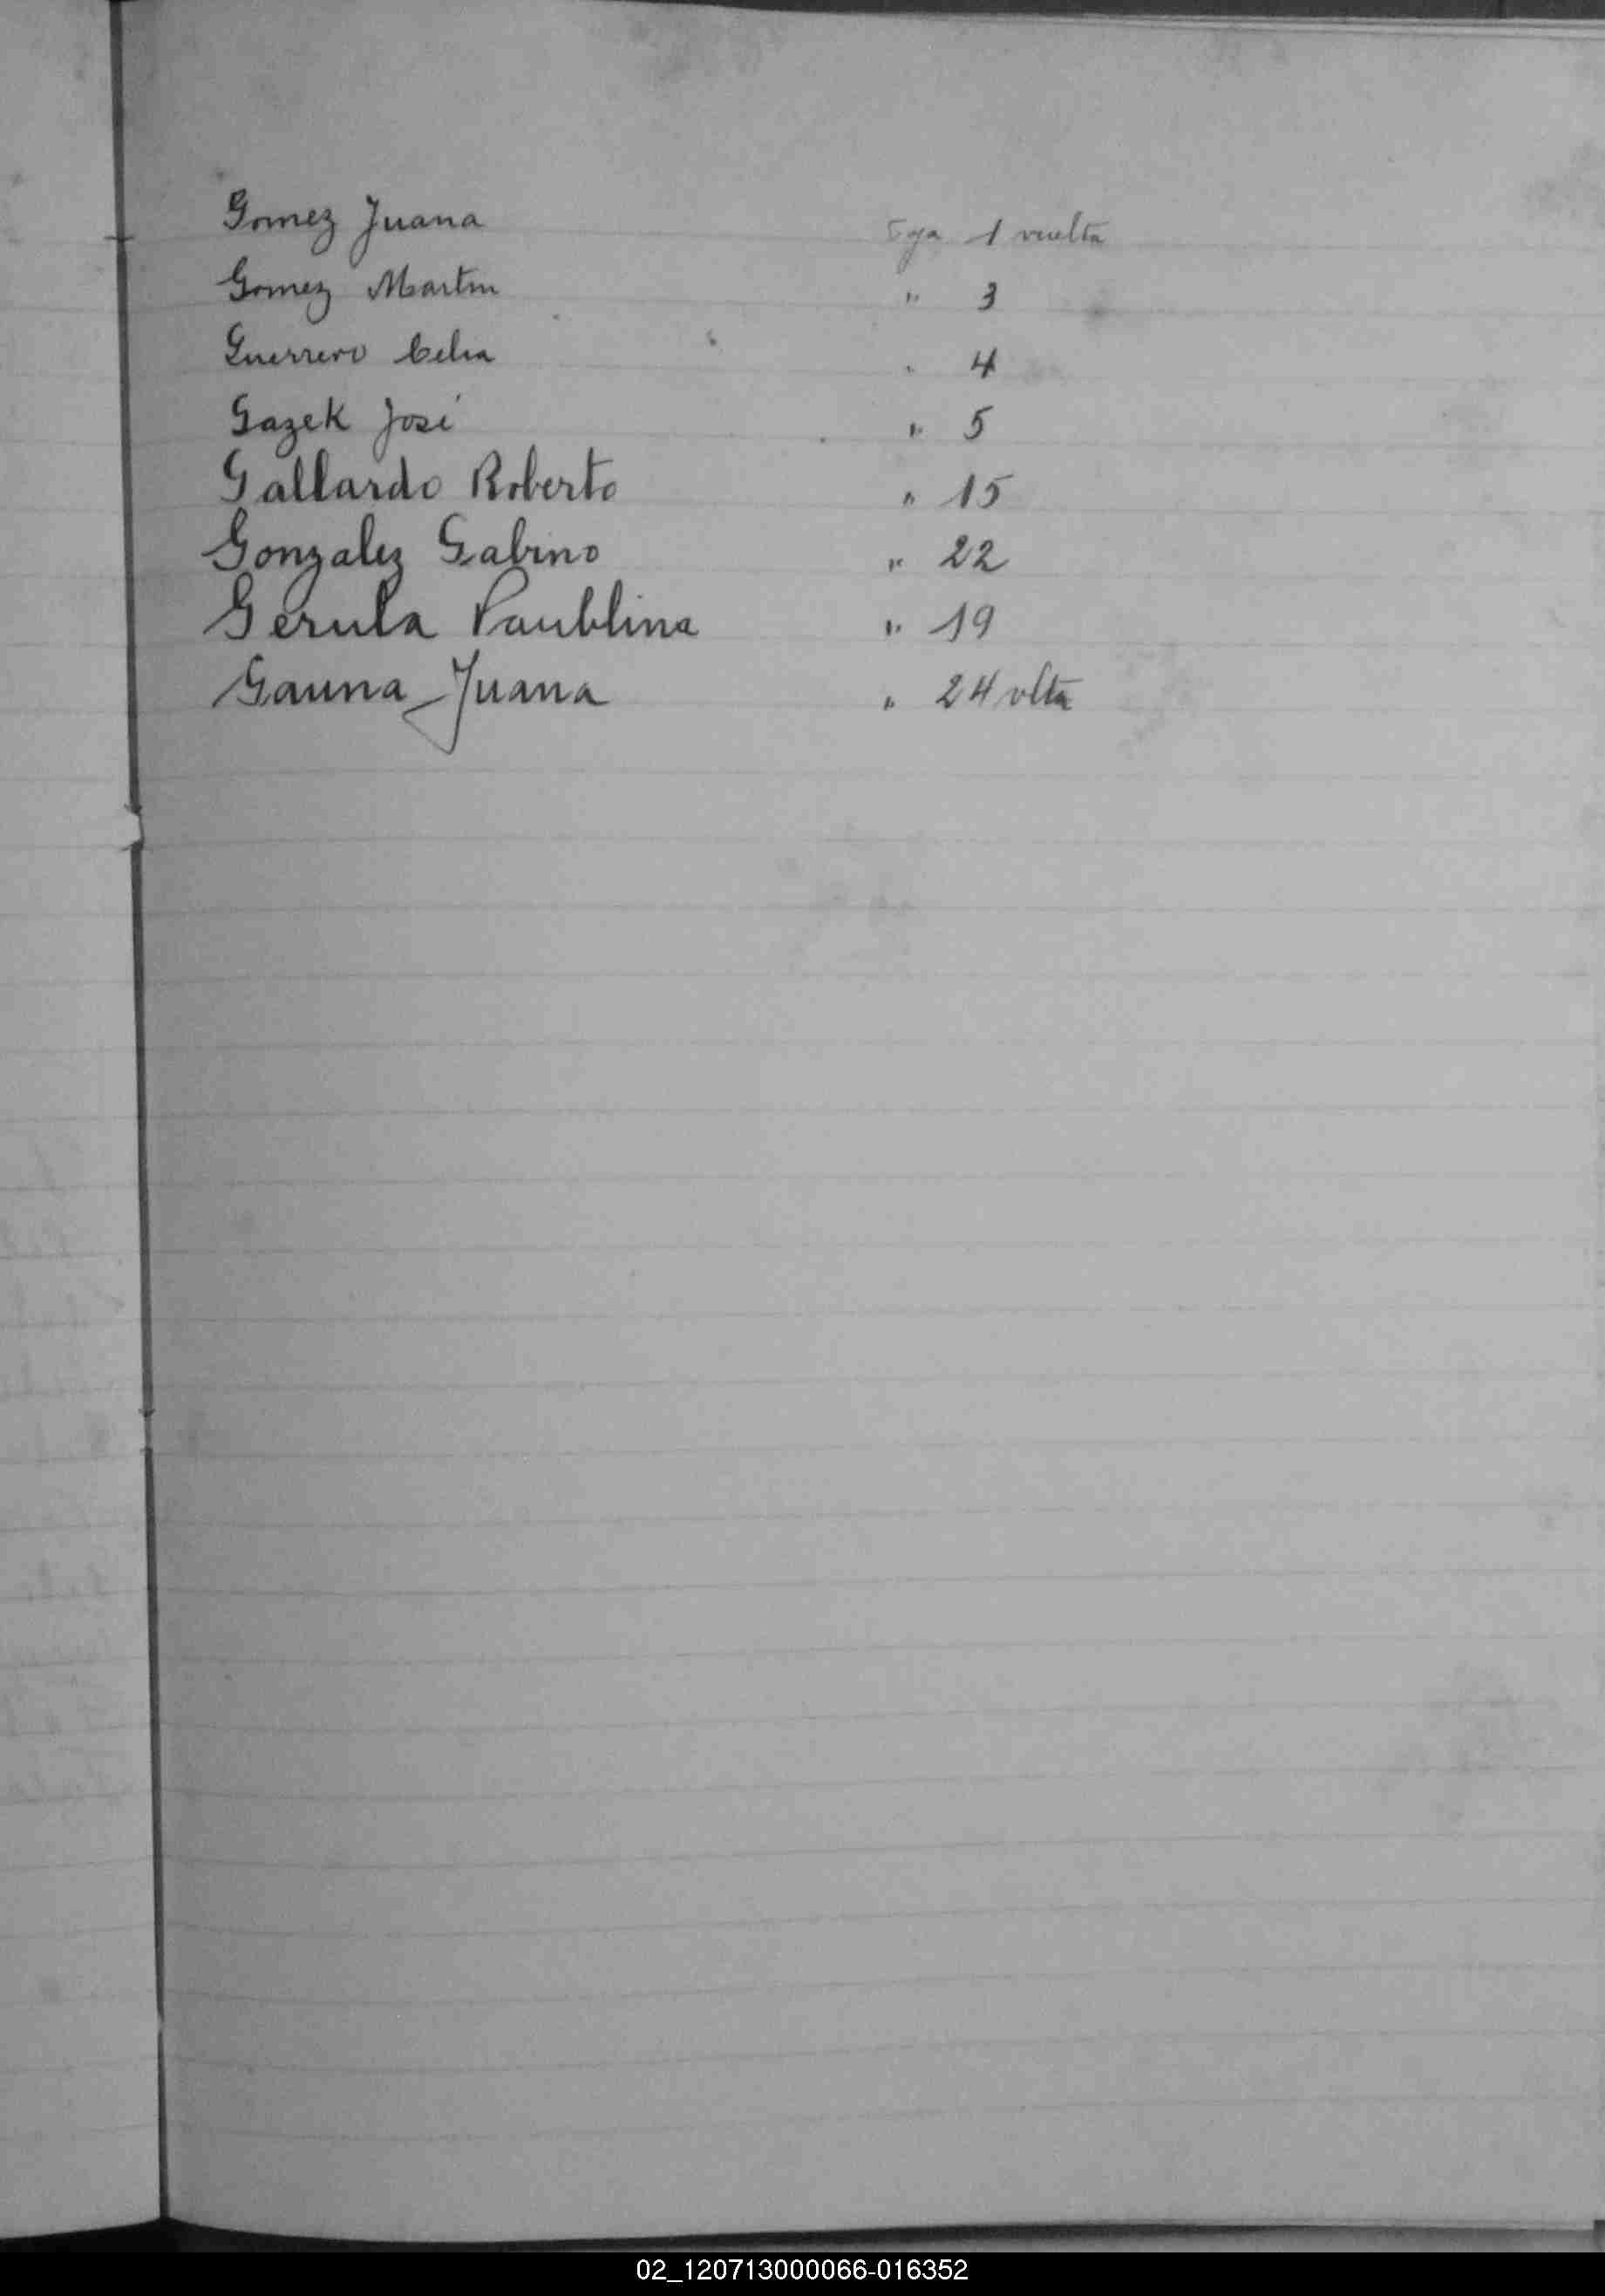 Gomez Juana foja 1 vuelta
Gomez Martin " 3
Guerrero Celia " 4
Gazek José " 5
Gallardo Roberto " 15
Gonzalez Gabino " 22
Gerula Paublina " 19
Gauna Juana " 24 vlta
02_120713000066-016352